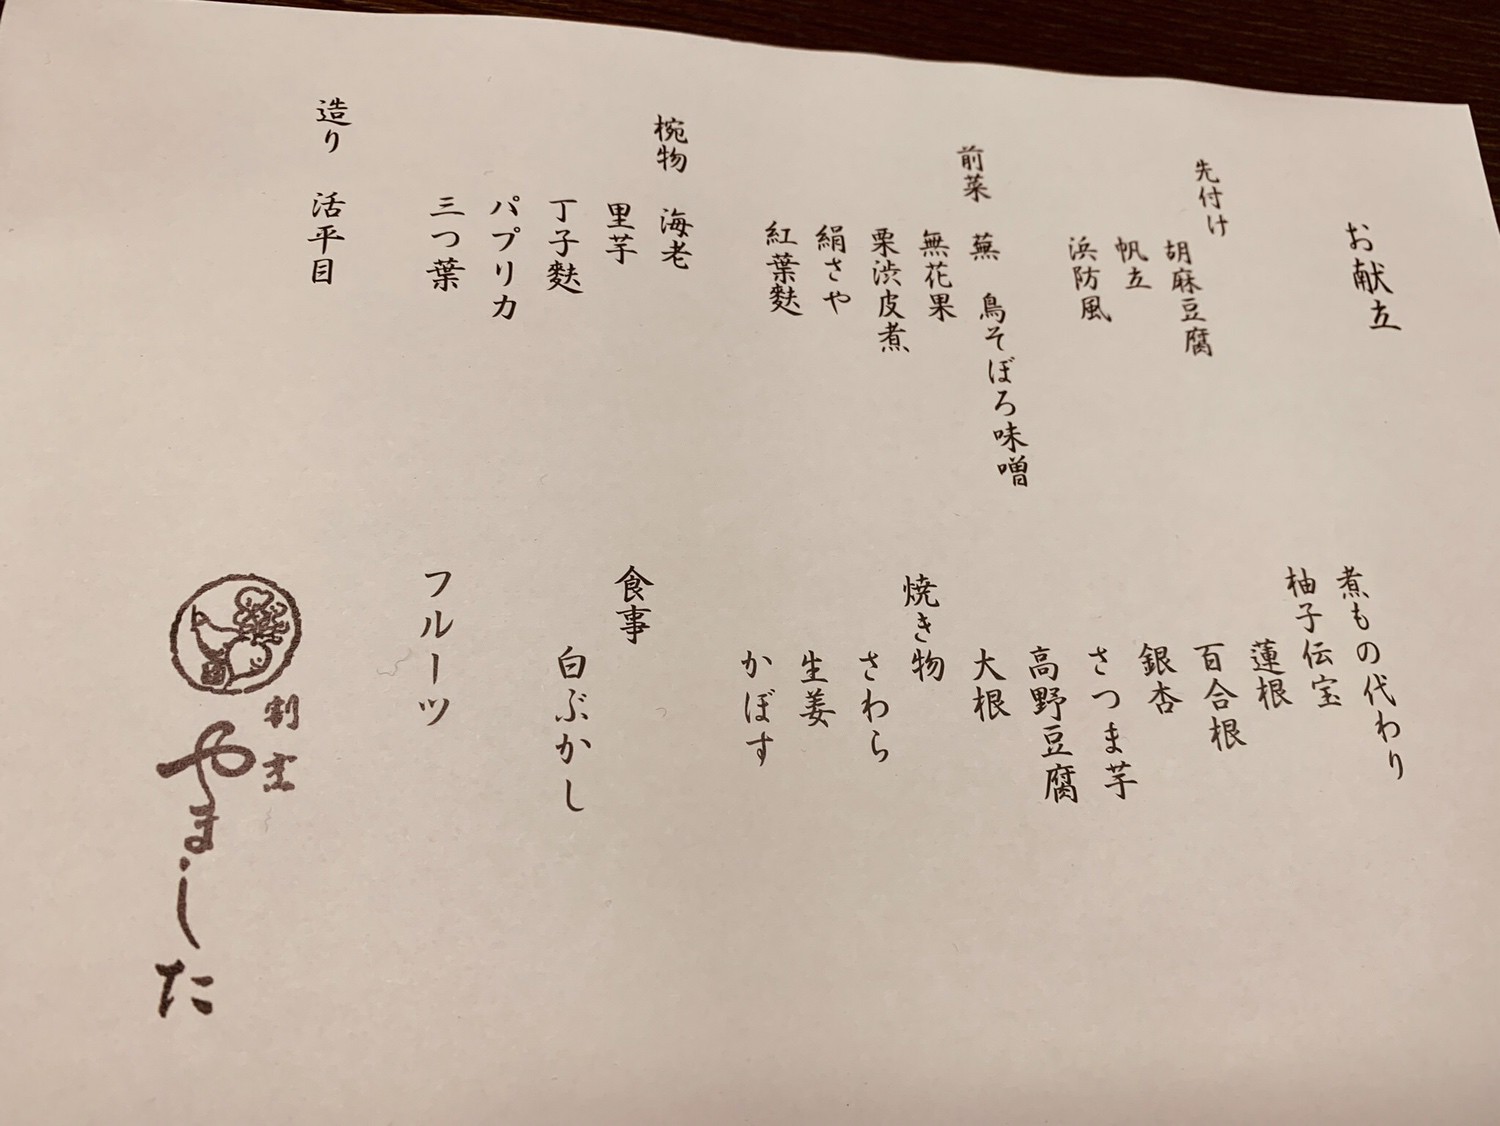 お献立
先付け
胡麻豆腐
帆立
浜防風
前菜　蕪　鳥そぼろ味噌
無花果
栗渋皮煮
絹さや
紅葉麩
椀物　海老
里芋
丁子麩
パプリカ
三つ葉
造り　活平目
煮もの代わり
柚子伝宝
蓮根
百合根
銀杏
さつま芋
高野豆腐
大根
焼き物
さわら
生姜
かぼす
食事
白ぶかし
フルーツ
割烹
やました